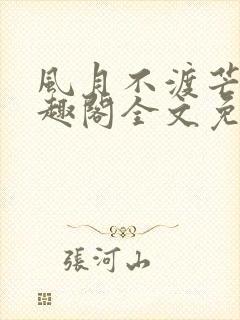 風月不渡芒
趣閣全文免
張河山